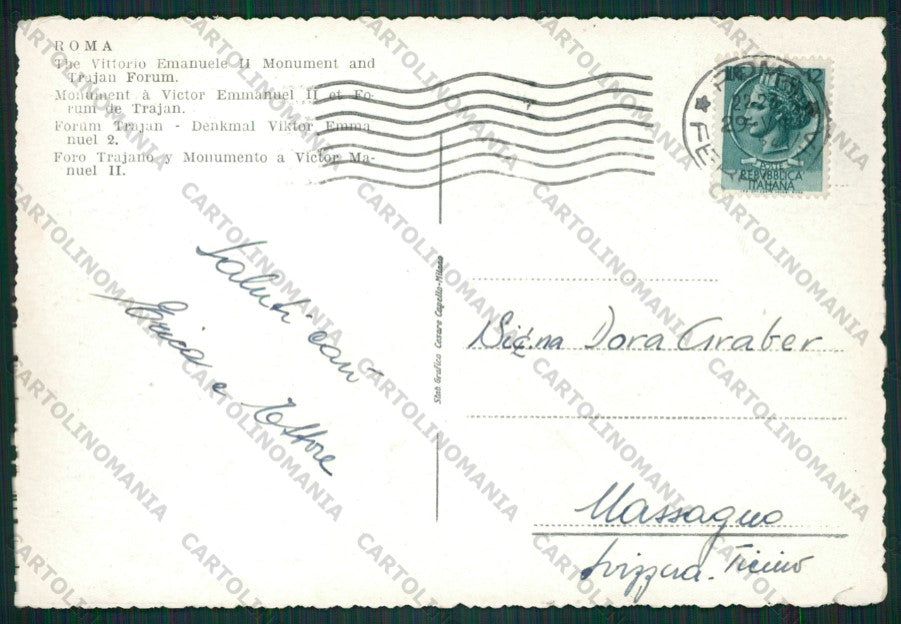 ROMA
The Vittorio Emanuele II Monument and
Trajan Forum.
Monument à Victor Emmanuel II et Fo-
rum de Trajan.
Forum Trajan - Denkmal Viktor Emma-
nuel 2.
Foro Trajano y Monumento a Victor Ma-
nuel II.
ROMA
FE
12
REPVBBLICA
ITALIANA
Saluti cari
Erica e Ettore
Stab Grafico Cesare Capello-Milano
Sig.na Dora Graber
Massagno
Svizzera. Ticino
CARTOLINOMANIA